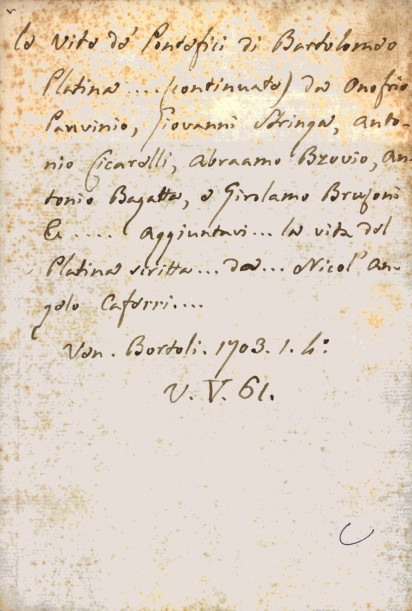 Le Vite de' Pontefici di Bartolomeo
Platina .... (continuate) da Onofrio
Panvinio, Giovanni Stringa, Anto-
nio Cicarelli, Abraamo Bzovio, An-
tonio Bagatta, e Girolamo Brusoni
&c ..... Aggiuntavi... la vita del
Platina scritta... da... Nicol' An-
gelo Caferri....
Ven. Bortoli. 1703. 1. 4º
V. V. 61.